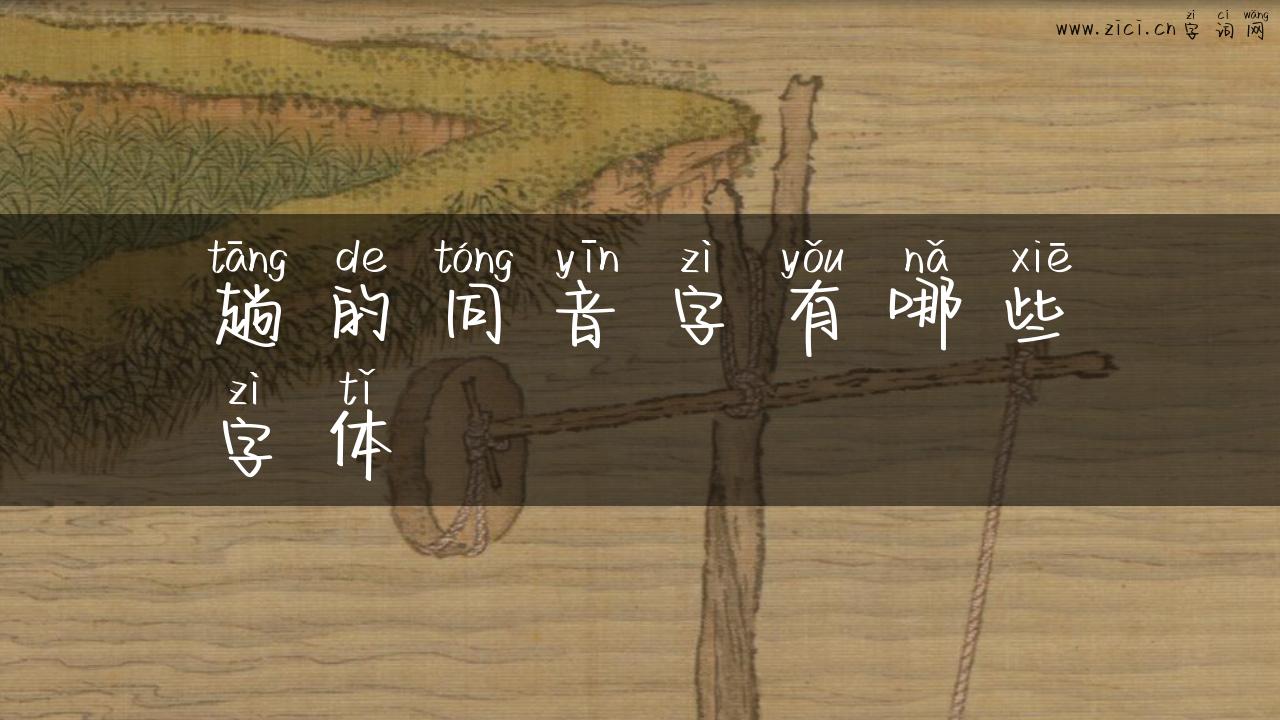 zì cí wǎng
www.zici.cn 字词网
tāng de tóng yīn zì yǒu nǎ xiē
趟的同音字有哪些
zì tǐ
字体